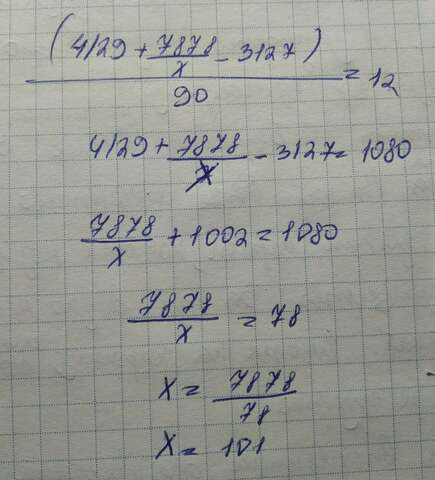 (4129 + 7878/x - 3127) / 90 = 12
4129 + 7878/x - 3127 = 1080
7878/x + 1002 = 1080
7878/x = 78
x = 7878/78
x = 101